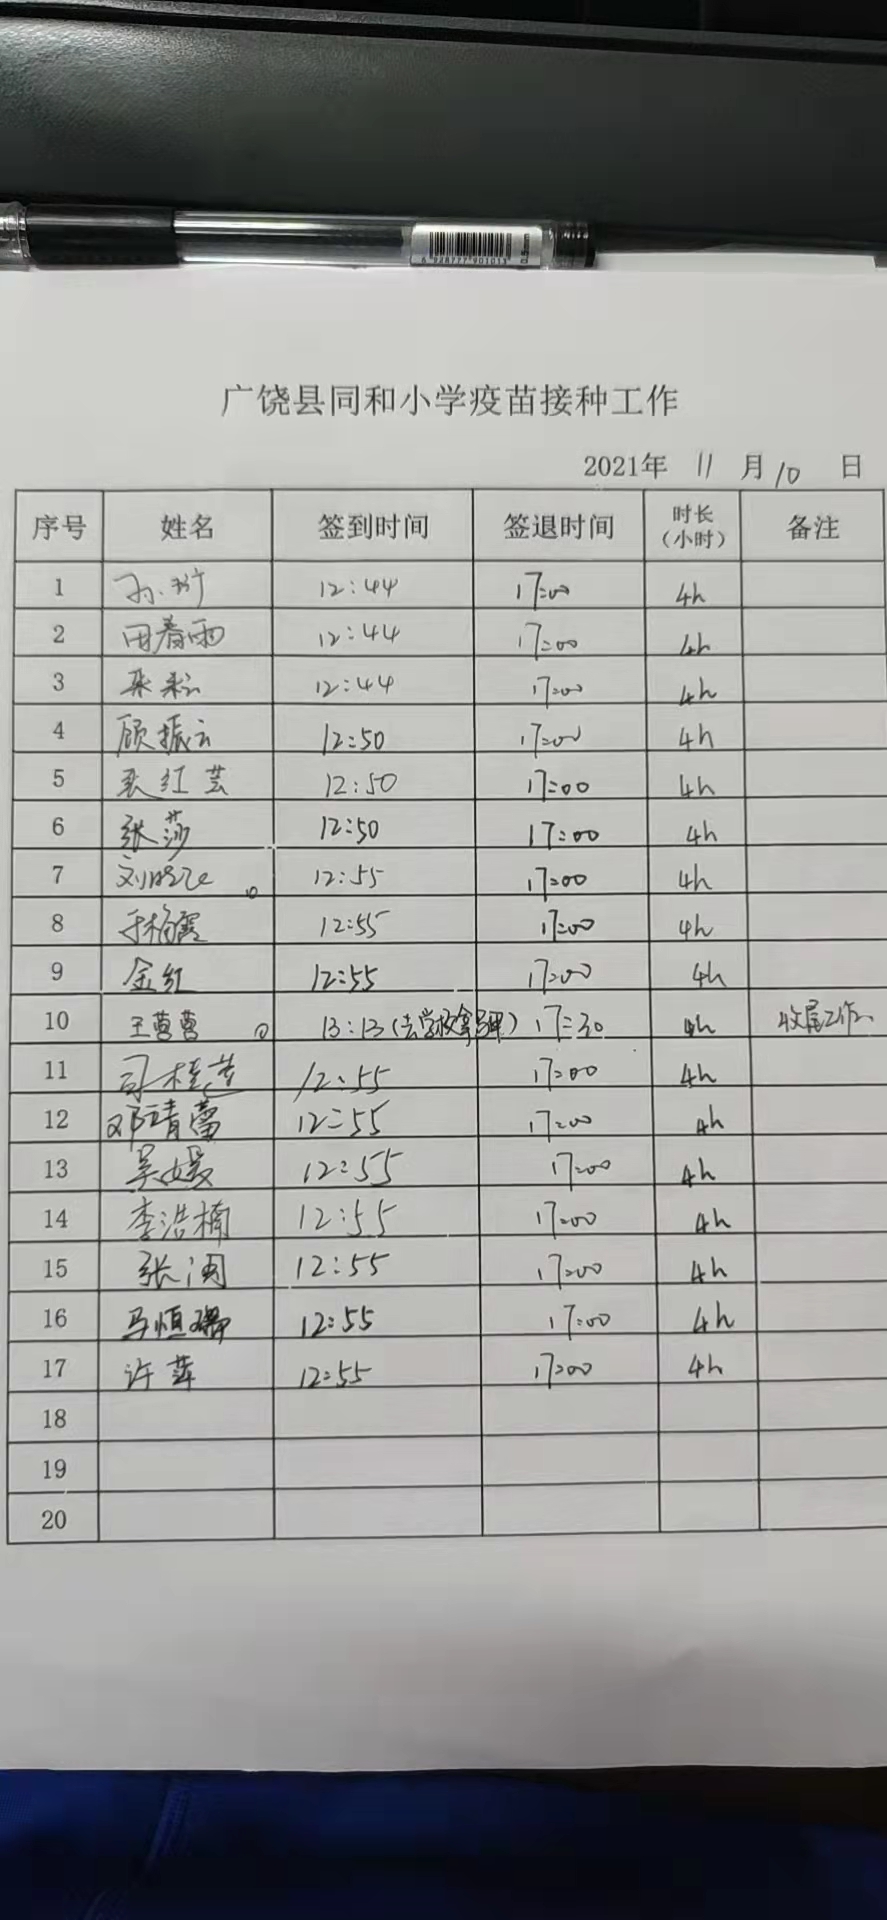 6 928777 901013
0.5mm
广饶县同和小学疫苗接种工作
2021年 11 月 10 日
序号 姓名 签到时间 签退时间 时长（小时） 备注
1 12:44 17:00 4h
2 田春雨 12:44 17:00 4h
3 12:44 17:00 4h
4 顾振云 12:50 17:00 4h
5 红芸 12:50 17:00 4h
6 张莎 12:50 17:00 4h
7 刘晓 12:55 17:00 4h
8 霞 12:55 17:00 4h
9 金红 12:55 17:00 4h
10 王营营 13:13（去学校拿） 17:30 4h 收尾工作
11 司桂莲 12:55 17:00 4h
12 邓靖蕾 12:55 17:00 4h
13 吴媛 12:55 17:00 4h
14 李浩楠 12:55 17:00 4h
15 张 12:55 17:00 4h
16 马恒 12:55 17:00 4h
17 许萍 12:55 17:00 4h
18
19
20